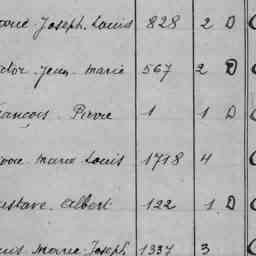 Joseph. Louis 828 2 D
Jean. Marie 567 2 D
François Pierre 1 1 D
Marie Louis 1718 4
Gustave. Albert 122 1 D
Louis Marie. Joseph 1337 3